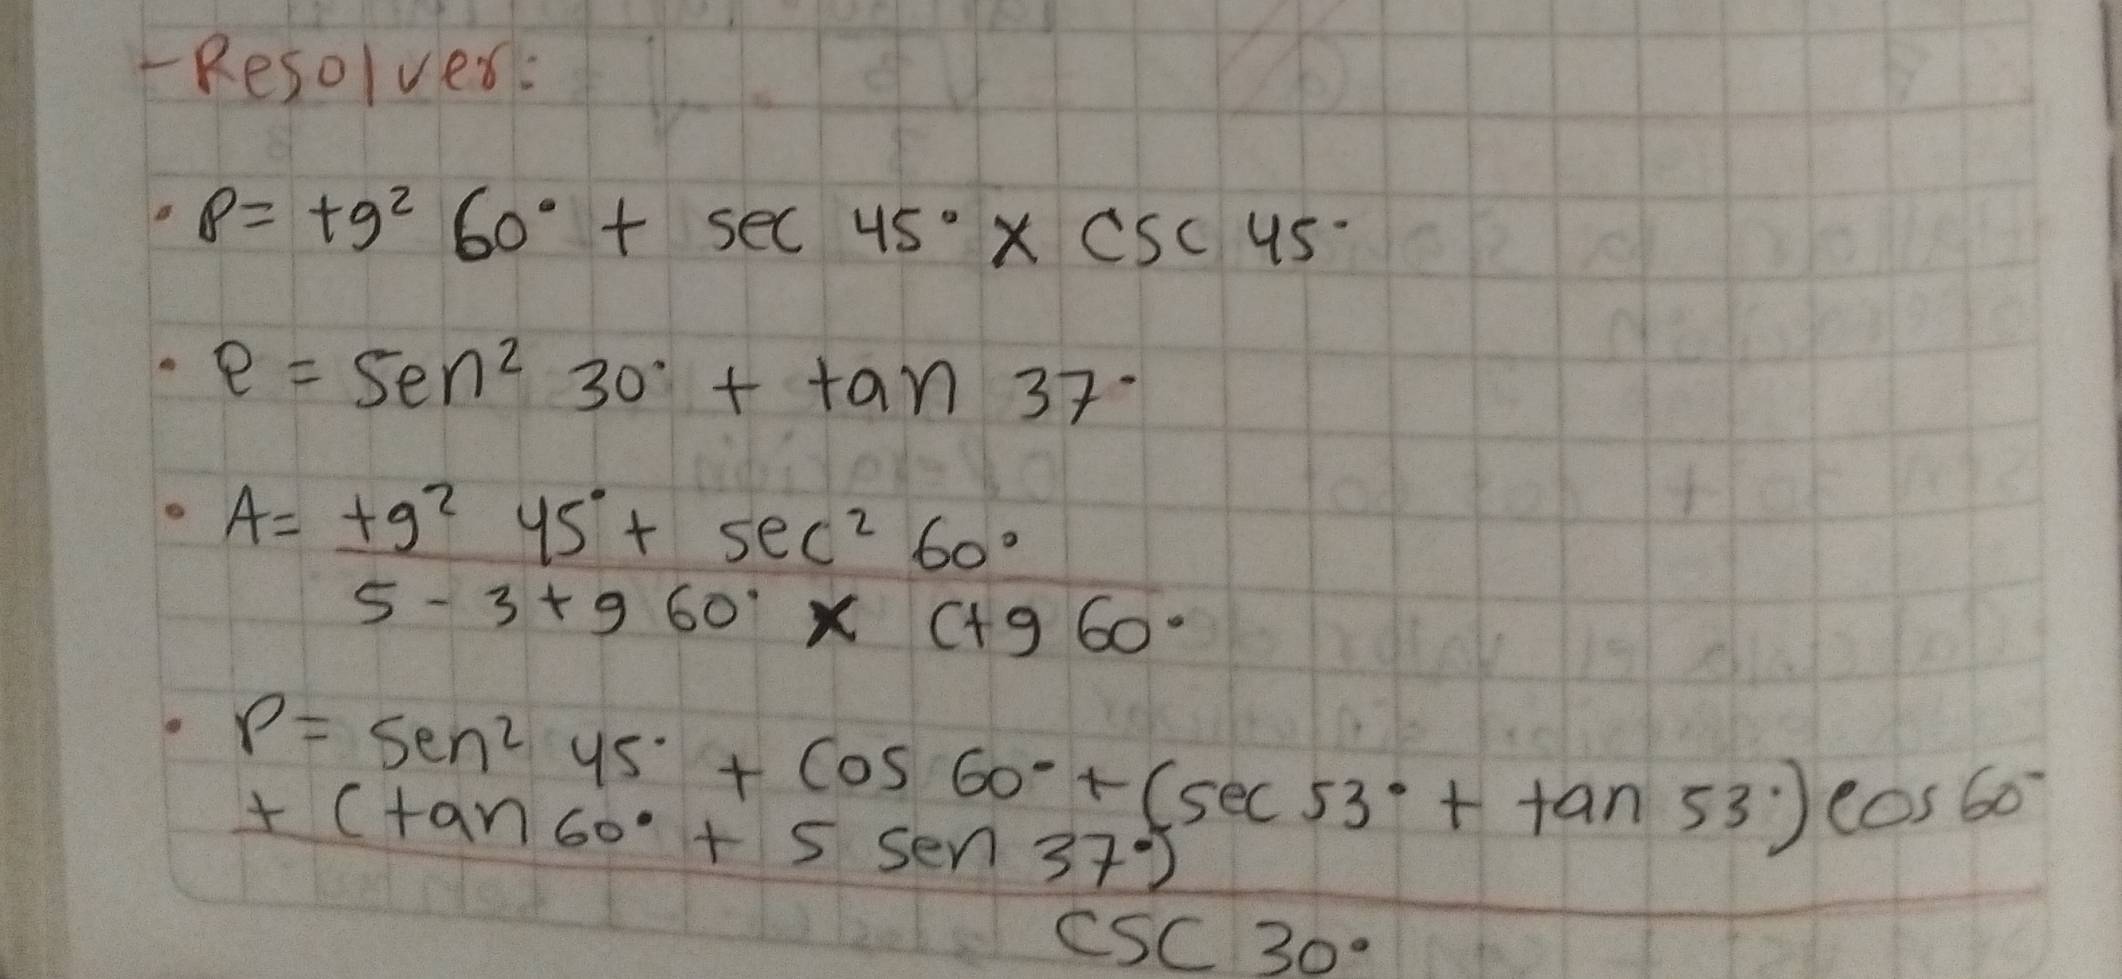 - Resolver:
• P = tg² 60° + sec 45° x csc 45°
• e = Sen² 30° + tan 37°
• A = tg² 45° + sec² 60°
5 - 3 tg 60° x ctg 60°
• P = Sen² 45° + Cos 60° + (sec 53° + tan 53°) cos 60°
+ (tan 60° + 5 sen 37°)
CSC 30°